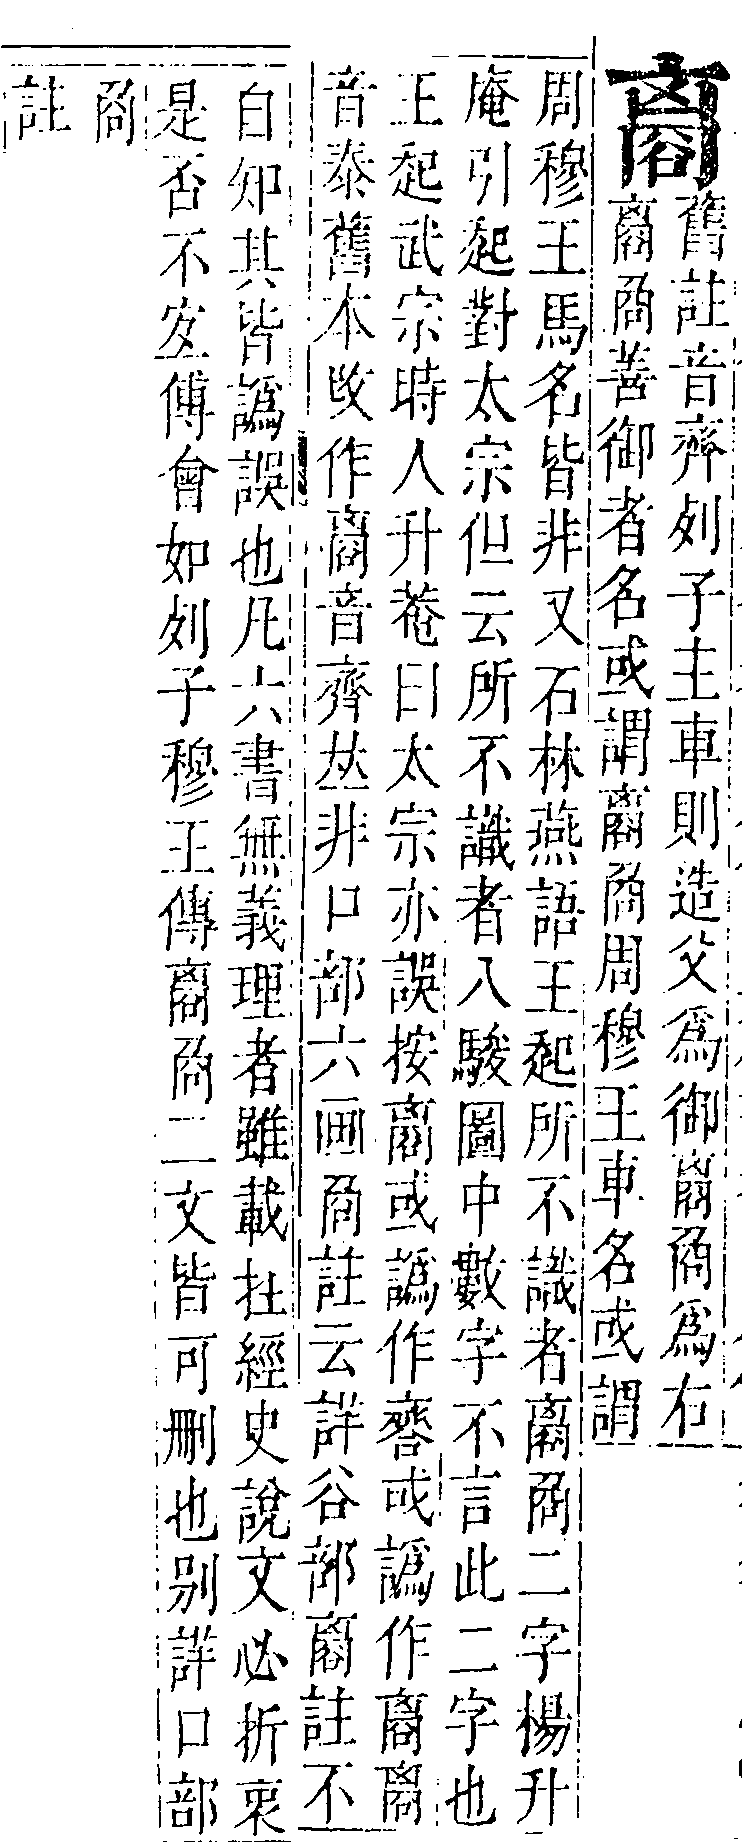 𧮼
舊註音齊列子主車則造父爲御𧮼𠱃爲右
𧮼𠱃善御者名或謂𧮼𠱃周穆王車名或謂
周穆王馬名皆非又石林燕語王起所不識者𧮼𠱃二字楊升
庵引起對太宗但云所不識者八駿圖中數字不言此二字也
王起武宗時人升菴曰太宗亦誤按𧮼或譌作或譌作
音泰舊本改作𧮼音齊𠀤非口部六画𠱃註云詳谷部𧮼註不
自知其皆譌誤也凡六書無義理者雖載在經史說文必折衷
是否不宐傅會如列子穆王傳𧮼𠱃二文皆可刪也别詳口部
𠱃
註